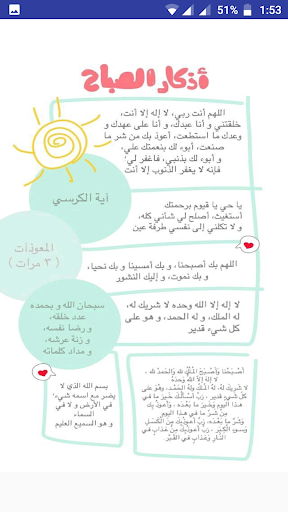 51% 1:53
أذكار الصباح
اللهم أنت ربي، لا إله إلا أنت،
خلقتني و أنا عبدك، و أنا على عهدك و
وعدك ما استطعت، أعوذ بك من شر ما
صنعت، أبوء لك بنعمتك علي،
و أبوء لك بذنبي، فاغفر لي
فإنه لا يغفر الذنوب إلا أنت
آية الكرسي
يا حي يا قيوم برحمتك
أستغيث، أصلح لي شأني كله،
و لا تكلني إلى نفسي طرفة عين
المعوذات
( ٣ مرات )
اللهم بك أصبحنا، و بك أمسينا و بك نحيا،
و بك نموت، و إليك النشور
سبحان الله و بحمده
عدد خلقه،
و رضا نفسه،
و زنة عرشه،
و مداد كلماته
لا إله إلا الله وحده لا شريك له،
له الملك، و له الحمد، و هو على
كل شيء قدير
بسم الله الذي لا
يضر مع اسمه شيء
في الأرض و لا في
السماء
و هو السميع العليم
أصبحنا وأصبح الملك لله والحمد لله ،
لا إله إلا الله وحده
لا شريك له، له الملك وله الحمد، وهو على
كل شيء قدير ، رب أسألك خير ما في
هذا اليوم وخير ما بعده ، وأعوذ بك
من شر ما في هذا اليوم
وشر ما بعده، رب أعوذ بك من الكسل
وسوء الكبر ، رب أعوذ بك من عذاب في
النار وعذاب في القبر